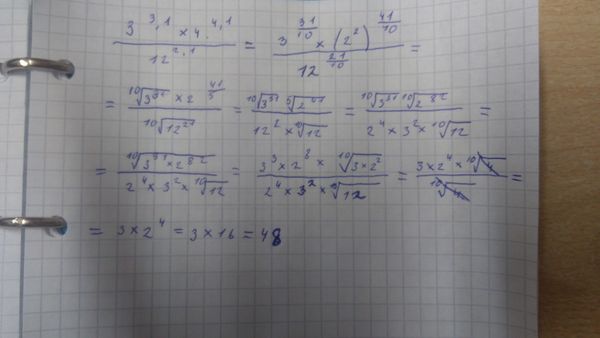 3^{3,1} × 4^{4,1} / 12^{2,1} = 3^{31/10} × (2^2)^{41/10} / 12^{21/10} =
= \sqrt[10]{3^{31}} × 2^{41/5} / \sqrt[10]{12^{21}} = \sqrt[10]{3^{31}} \sqrt[5]{2^{41}} / 12^2 × \sqrt[10]{12} = \sqrt[10]{3^{31}} \sqrt[10]{2^{82}} / 2^4 × 3^2 × \sqrt[10]{12} =
= \sqrt[10]{3^{31} × 2^{82}} / 2^4 × 3^2 × \sqrt[10]{12} = 3^3 × 2^8 × \sqrt[10]{3 × 2^2} / 2^4 × 3^2 × \sqrt[10]{12} = 3 × 2^4 × \sqrt[10]{} / \sqrt[10]{} =
= 3 × 2^4 = 3 × 16 = 48